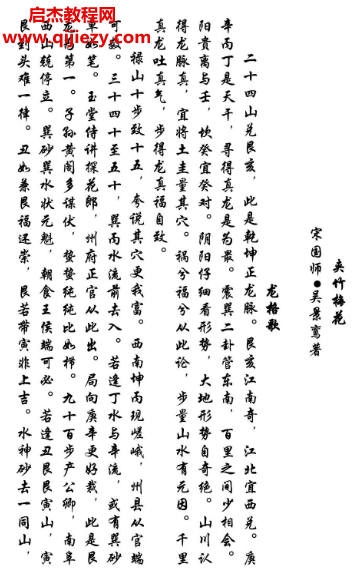 启杰电子书
qijiedzs.com
夹竹梅花
宋国师●吴景鸾著
龙格歌
二十四山兑艮亥，此是乾坤正龙脉。艮亥江南奇，江北宜西兑。庚
辛丙丁是天干，寻得真龙是为最。震巽二卦管东南，百里之间少相会。
阳贵离与壬，坎癸宜癸对。阴阳仔细看形势，大地形势自奇绝。山川认
得龙脉真，宜将土圭量其穴。祸兮福兮从此论，步量山水有元因。千里
真龙吐真气，步得龙真福自致。
禄山十步致十五，夸说其穴更我富。西南坤丙现嵯峨，州县从官端
可数。三十四十至五十，巽丙水流前去入。若逢丁水与辛流，或有巽砂
卓如笔。玉堂侍讲探花郎，州府正官从此出。局向庚辛更好裁，此是艮
龙格第一。子孙黄阁多谋伏，蛰蛰绝绝比如栉。九十百步产公卿，南阜
西山兢停立。巽砂巽水状元魁，朝食王侯端可必。若逢丑艮艮寅山，寅
艮到头难一律。丑如兼艮福还崇，艮若带寅非上吉。水神砂去一同山，